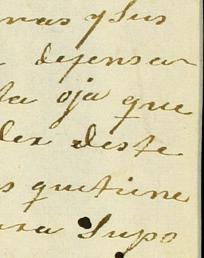 nas y Sus
defensar
ta oja que
der deste
s quetiene
ra Supo